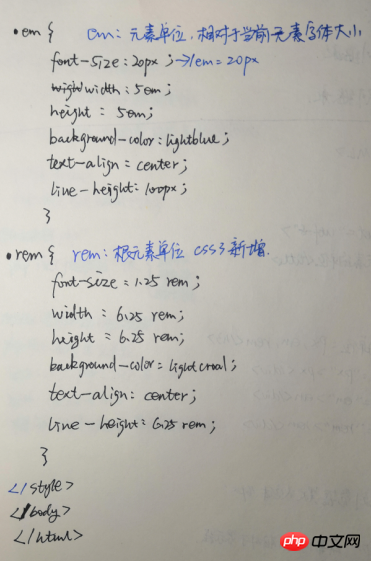 .em { em：元素单位，相对于当前元素字体大小
font-size：20px；→1em=20px
width：5em；
height：5em；
background-color：lightblue；
text-align：center；
line-height：100px；
}
.rem { rem：根元素单位 CSS3新增.
font-size：1.25 rem；
width：6.25 rem；
height：6.25 rem；
background-color：lightcroal；
text-align：center；
line-height：6.25 rem；
}
</style>
</body>
</html>
php 中文网